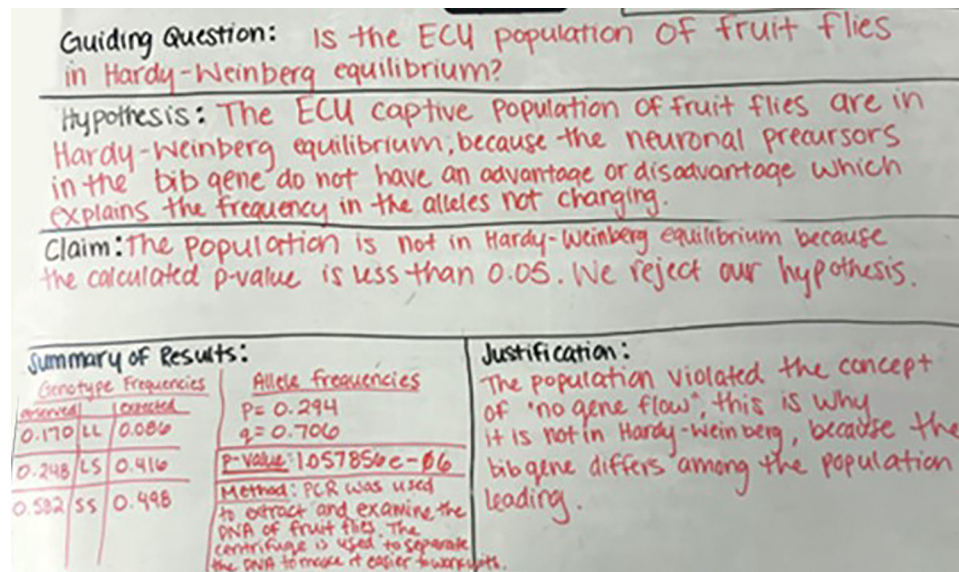 Guiding Question: Is the ECU population of fruit flies
in Hardy-Weinberg equilibrium?
Hypothesis: The ECU captive population of fruit flies are in
Hardy-Weinberg equilibrium, because the neuronal precursors
in the bib gene do not have an advantage or disadvantage which
explains the frequency in the alleles not changing.
Claim: The population is not in Hardy-Weinberg equilibrium because
the calculated p-value is less than 0.05. We reject our hypothesis.
Summary of Results:
Genotype Frequencies
observed expected
0.170 LL 0.086
0.248 LS 0.416
0.582 SS 0.498
Allele frequencies
P= 0.294
q= 0.706
P-value: 1.057856e-06
Method: PCR was used
to extract and examine the
DNA of fruit flies. The
centrifuge is used to separate
the DNA to make it easier to work with.
Justification:
The population violated the concept
of "no gene flow", this is why
it is not in Hardy-Weinberg, because the
bib gene differs among the population
leading.